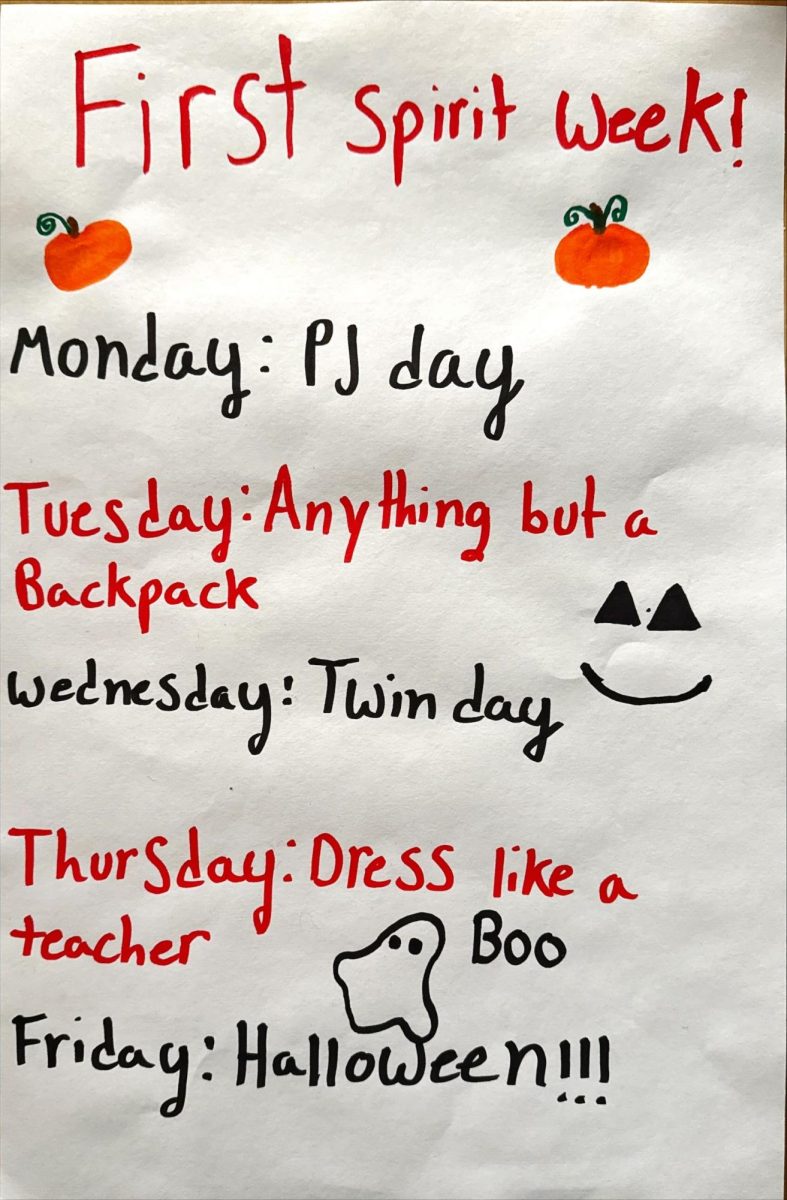 First Spirit Week!
Monday: PJ day
Tuesday: Anything but a
Backpack
Wednesday: Twin day
Thursday: Dress like a
teacher
Boo
Friday: Halloween!!!